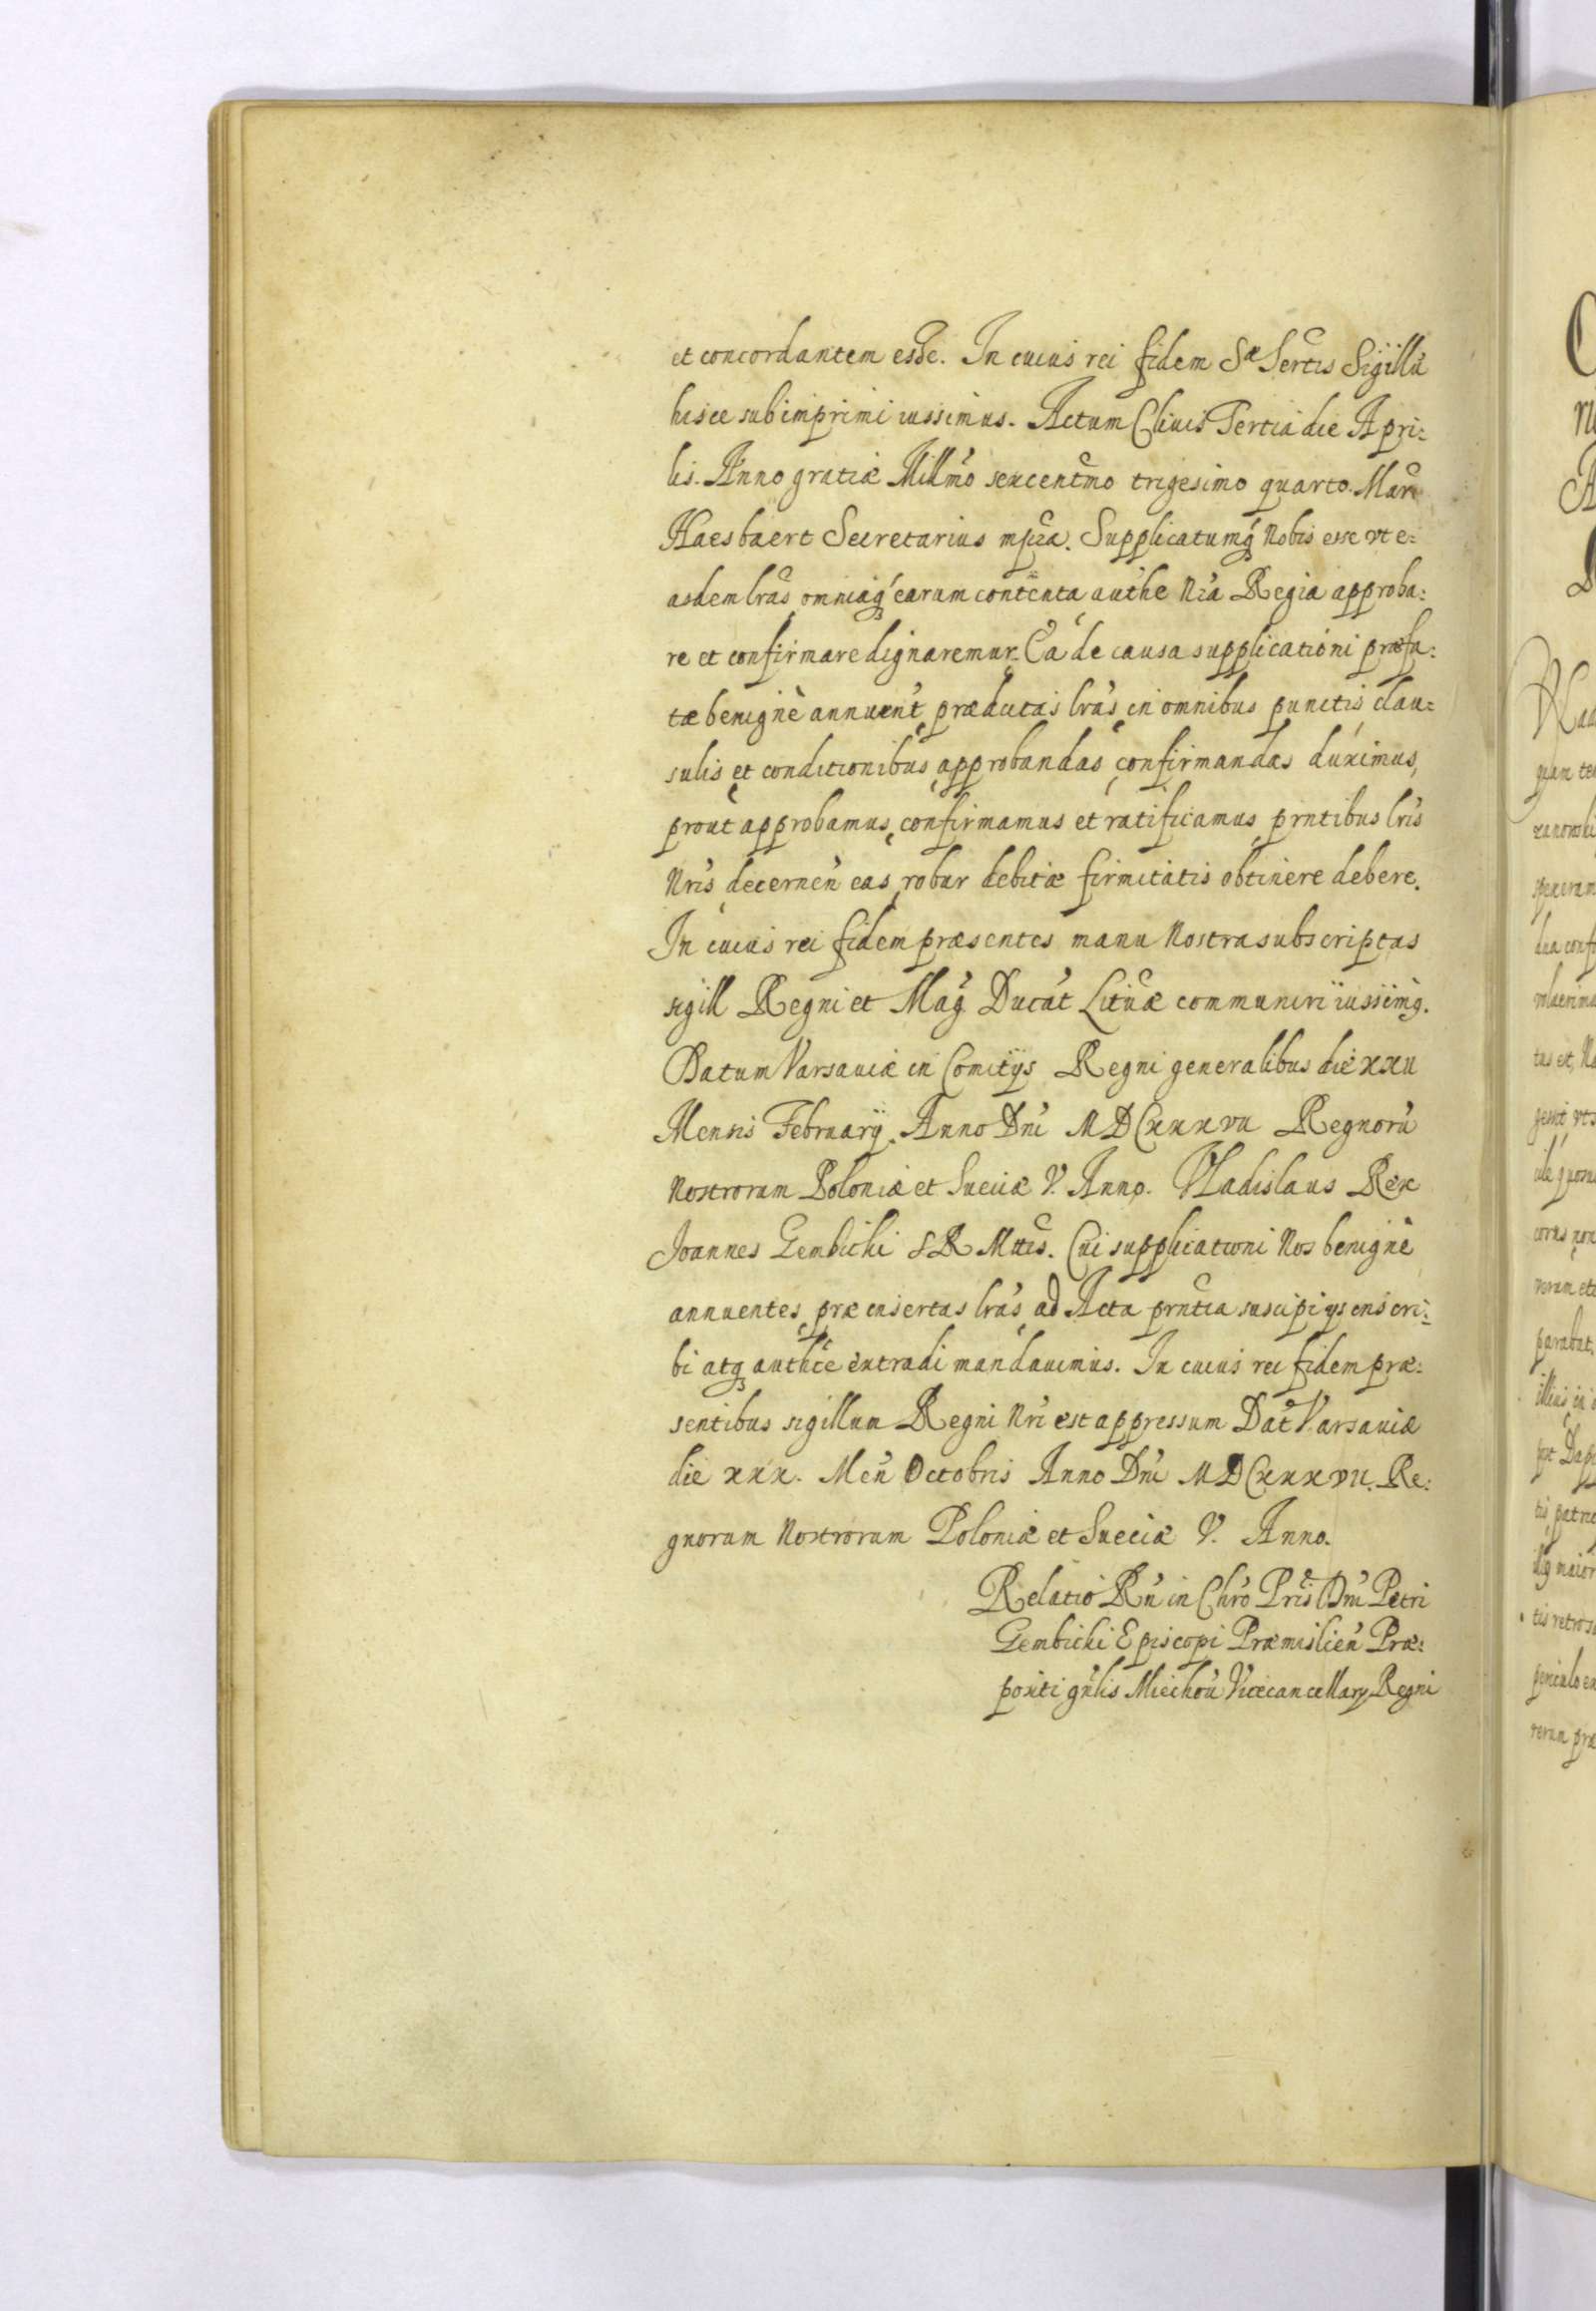 et concordantem esse. In cuius rei fidem Sæ Sertis Sigillũ
hisce subimprimi iussimus. Actum Cliuis Tertia die Apri:
lis. Anno gratiæ Millmo sexcentmo trigesimo quarto. Marc
Haesbaert Secretarius mpra. Supplicatumq́ Nobis esse vt e:
asdem lras omniaq́ earum contenta authe Nra Regia approba:
re et confirmare dignaremur. Ea de causa supplicationi præfa:
tæ benignè annuent prædictas lras in omnibus punctis clau:
sulis et conditionibus approbandas confirmandas duximus,
prout approbamus, confirmamus et ratificamus prntibus lris
Nris decernen eas robur debitæ firmitatis obtinere debere.
In cuius rei fidem præsentes manu Nostra subscriptas
sigill Regni et Mag Ducat Lituæ communiri iussimq.
Datum Varsauiæ in Comitijs Regni generalibus die xxii
Mensis February. Anno Dni MDCxxxvii Regnorũ
Nostrorum Poloniæ et Sueciæ V. Anno. Vladislaus Rex
Joannes Gembicki S R Mttis. Cui supplicationi Nos benignè
annuentes præinsertas lras ad Acta prntia suscipi ijs inscri:
bi atq authce extradi mandauimus. In cuius rei fidem præ:
sentibus sigillum Regni Nri est appressum Dat Varsauiæ
die xxx. Men Octobris Anno Dni MDCxxxvii. Re:
gnorum Nostrorum Poloniæ et Sueciæ V. Anno.
Relatio Rn in Chro Pris Dni Petri
Gembicki Episcopi Præmislien Præ:
positi gnlis Miechou Vicecancellary Regni